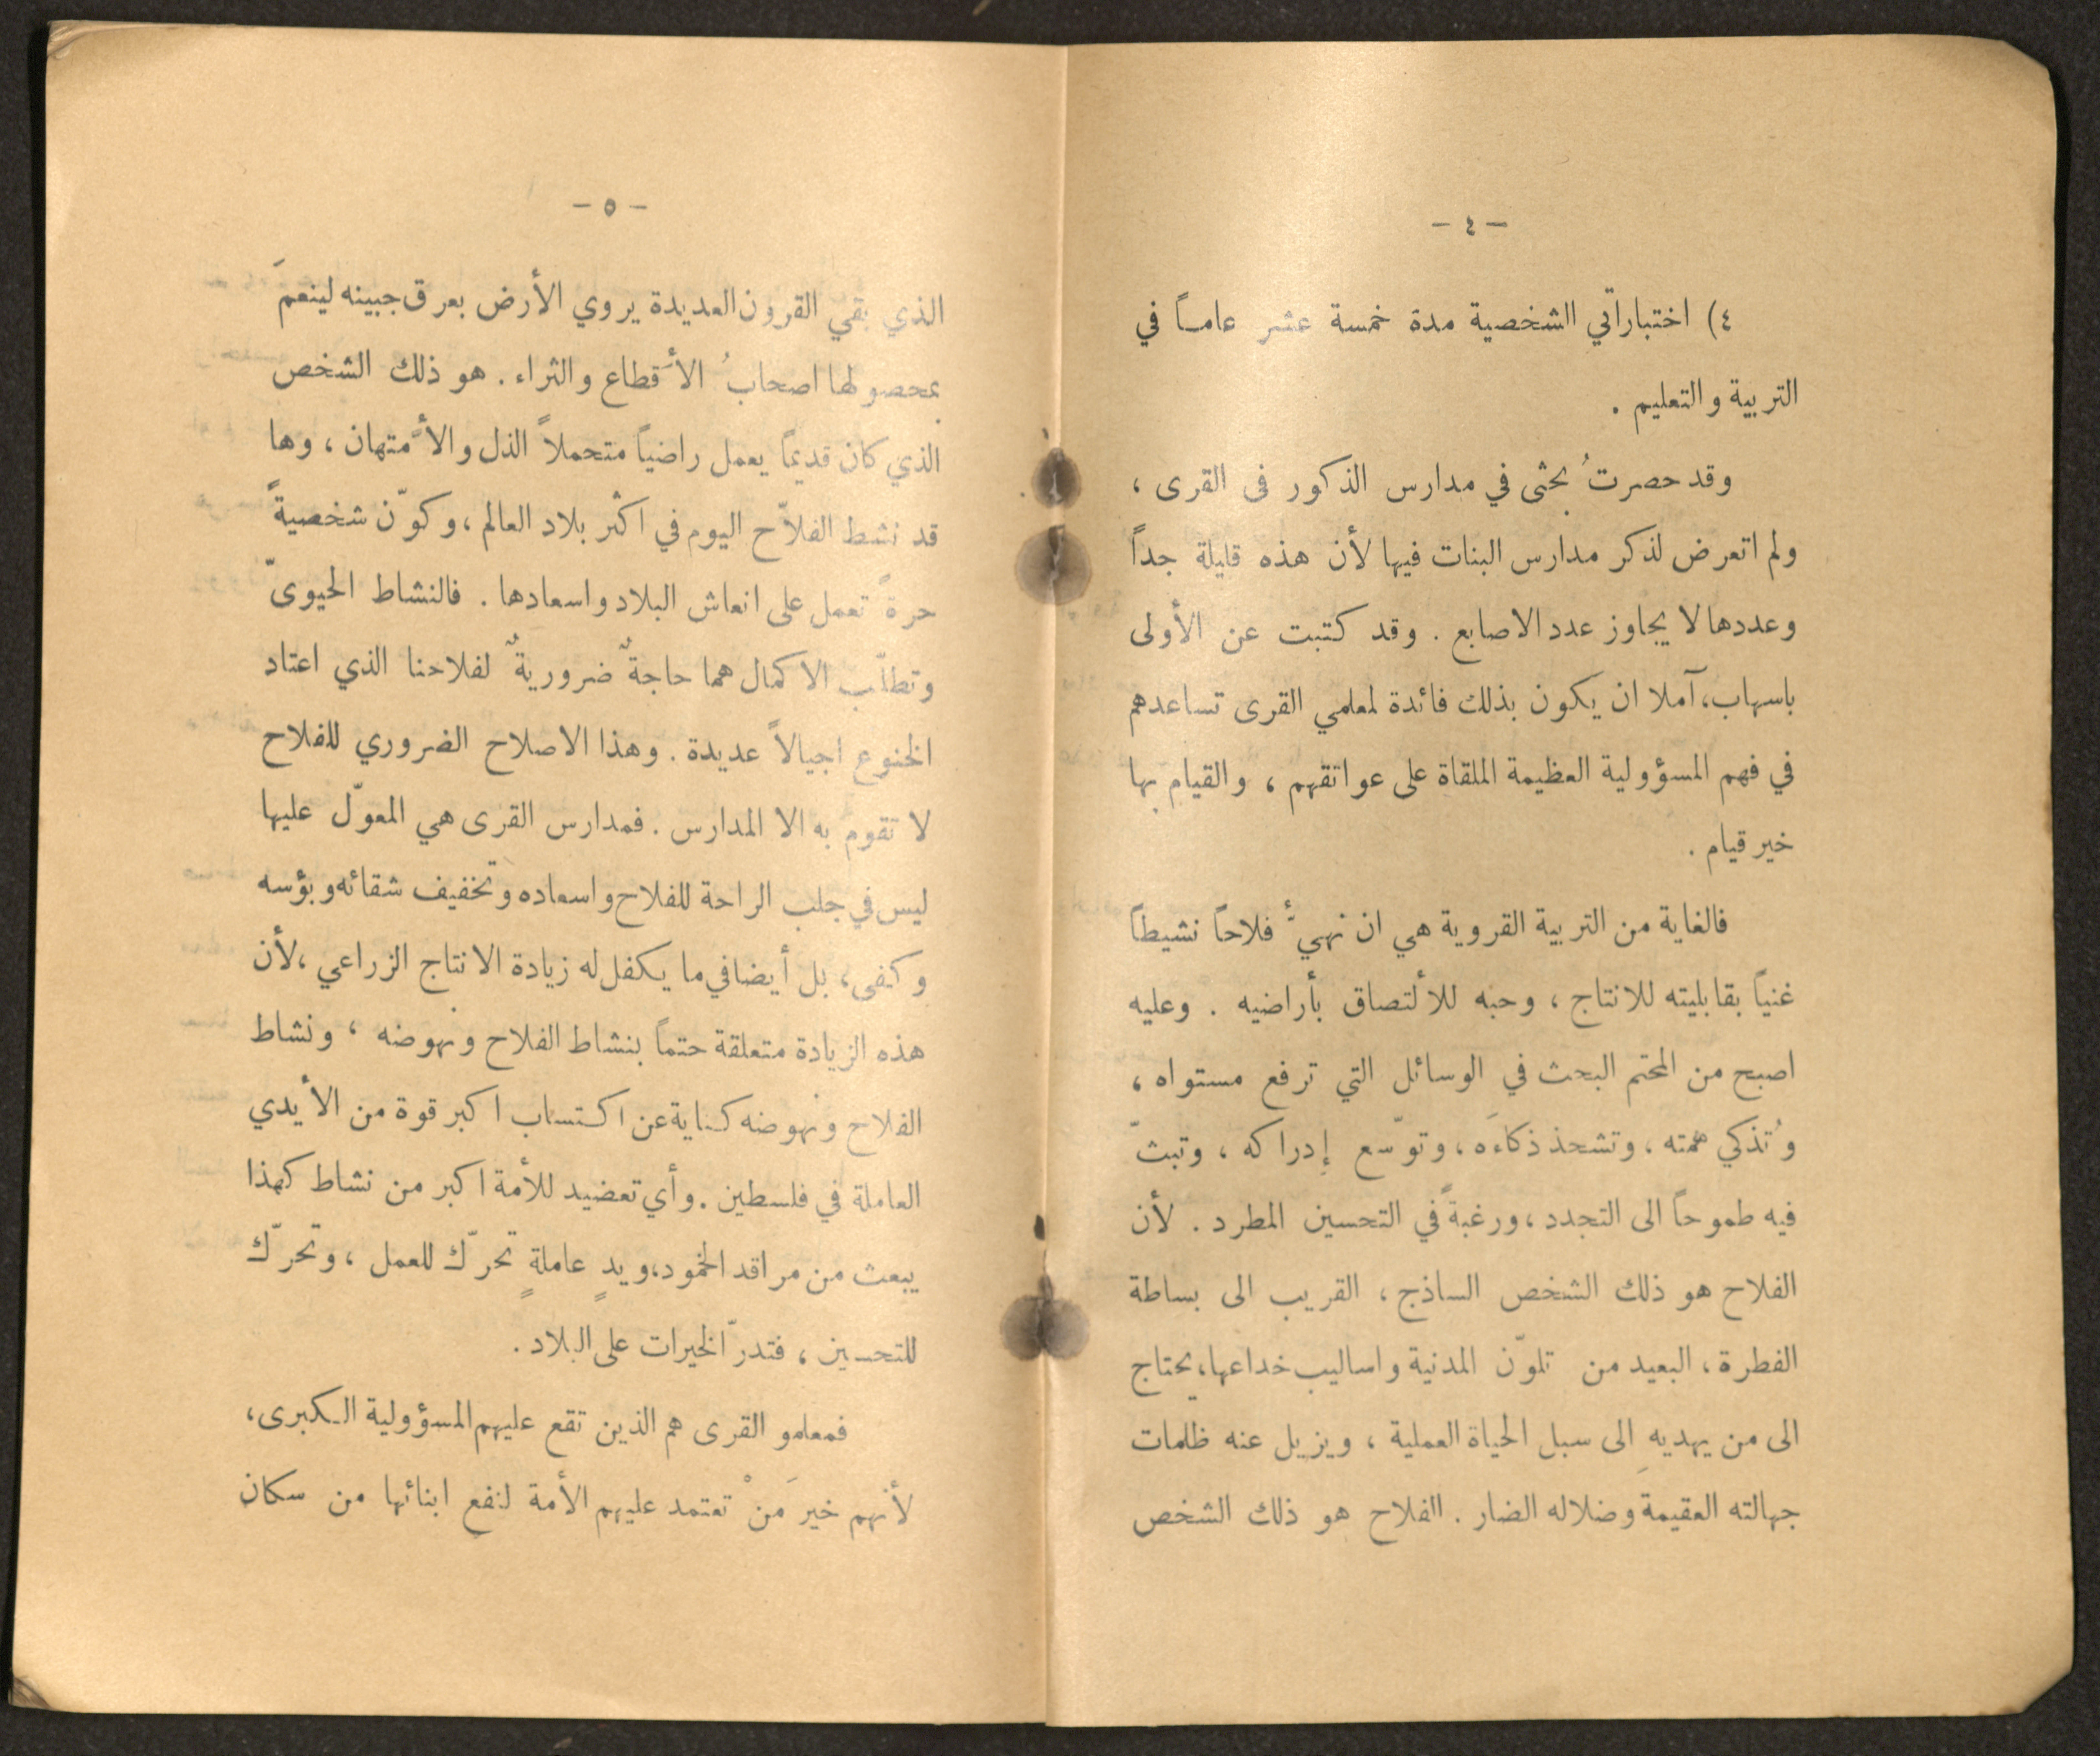 — ٤ —
٤) اختباراتي الشخصية مدة خمسة عشر عاماً في
التربية والتعليم .
وقد حصرتُ بحثى في مدارس الذكور فى القرى ،
ولم اتعرض لذكر مدارس البنات فيها لأن هذه قليلة جداً
وعددها لا يجاوز عدد الاصابع . وقد كتبت عن الأولى
باسهاب، آملا ان يكون بذلك فائدة لمعلمي القرى تساعدهم
في فهم المسؤولية العظيمة الملقاة على عواتقهم ، والقيام بها
خير قيام .
فالغاية من التربية القروية هي ان نهيّأ فلاحاً نشيطاً
غنياً بقابليته للانتاج ، وحبه للألتصاق بأراضيه . وعليه
اصبح من المحتم البحث في الوسائل التي ترفع مستواه ،
وُتذكي همته ، وتشحذ ذكاءَه ، وتوّسع إدراكه ، وتبثّ
فيه طموحاً الى التجدد ، ورغبةً في التحسين المطرد . لأن
الفلاح هو ذلك الشخص الساذج ، القريب الى بساطة
الفطرة ، البعيد من تلوّن المدنية واساليب خداعها، يحتاج
الى من يهديه الى سبل الحياة العملية ، ويزيل عنه ظلمات
جهالته العقيمةِ وضلاله الضار . الفلاح هو ذلك الشخص
— ٥ —
الذي بقي القرون العديدة يروي الأرض بعرق جبينه لينعمَ
بمحصولها اصحابُ الأقطاع والثراء . هو ذلك الشخص
الذي كان قديماً يعمل راضياً متحملاً الذل والأمتهان ، وها
قد نشط الفلاّح اليوم في اكثر بلاد العالم ، وكوّن شخصيةً
حرةً تعمل على انعاش البلاد واسعادها . فالنشاط الحيوىّ
وتطلّب الاكمال هما حاجةٌ ضروريةٌ لفلاحنا الذي اعتاد
الخنوع اجيالاً عديدة . وهذا الاصلاح الضروري للفلاح
لا تقوم به الا المدارس . فمدارس القرى هي المعوّل عليها
ليس في جلب الراحة للفلاح واسعاده وتخفيف شقائه وبؤسه
وكفى ، بل أيضا في ما يكفل له زيادة الانتاج الزراعي ، لأن
هذه الزيادة متعلقة حتماً بنشاط الفلاح ونهوضه ، ونشاط
الفلاح ونهوضه كناية عن اكتساب اكبر قوة من الأيدي
العاملة في فلسطين . وأي تعضيد للأمة اكبر من نشاط كهذا
يبعث من مراقد الخمود، ويدٍ عاملةٍ تحرّك للعمل ، وتحرّك
للتحسين ، فتدرّ الخيرات على البلاد .
فمعلمو القرى هم الذين تقع عليهم المسؤولية الكبرى ،
لأنهم خيرَ مَنْ تعتمد عليهم الأمة لنفع ابنائها من سكان